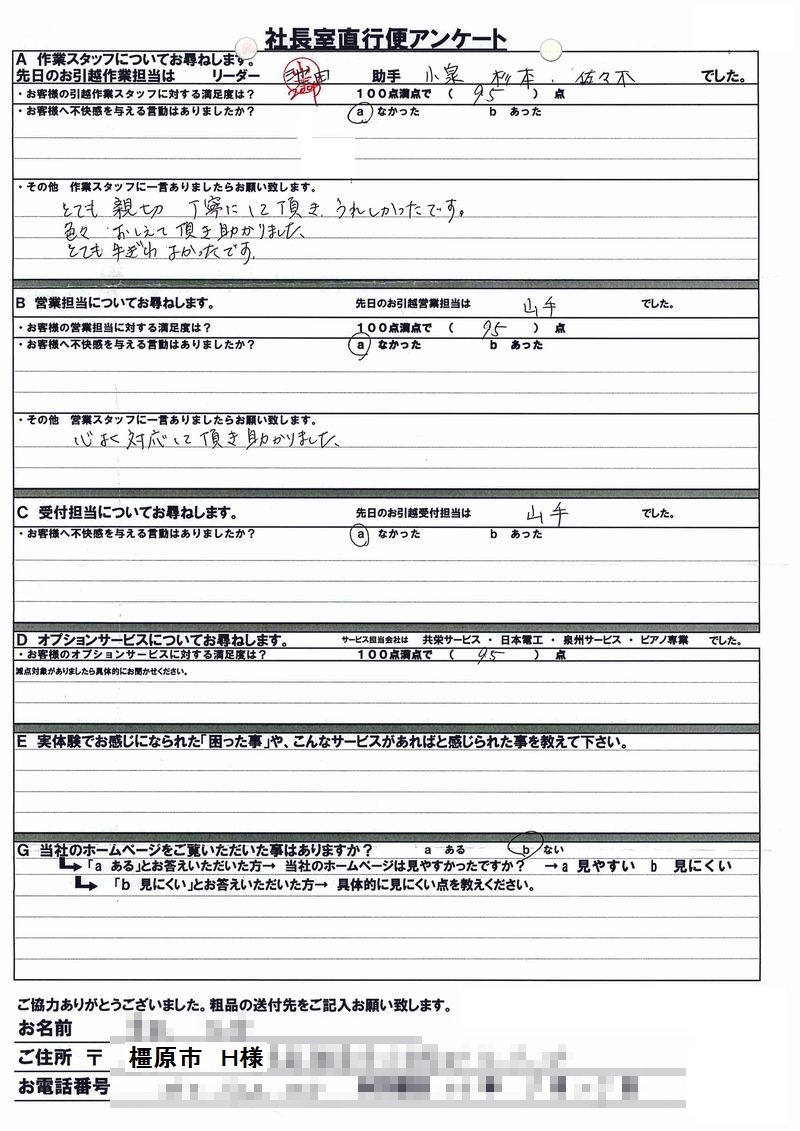 社長室直行便アンケート
A 作業スタッフについてお尋ねします。
先日のお引越作業担当は リーダー 助手 小泉 杉本、佐々木 でした。
・お客様の引越作業スタッフに対する満足度は? 100点満点で ( 95 ) 点
・お客様へ不快感を与える言動はありましたか? a なかった b あった
・その他 作業スタッフに一言ありましたらお願い致します。
とても 親切 丁寧にして頂き、うれしかったです。
色々 おしえて頂き助かりました、
とても よかったです。
B 営業担当についてお尋ねします。 先日のお引越営業担当は 山手 でした。
・お客様の営業担当に対する満足度は? 100点満点で ( 95 ) 点
・お客様へ不快感を与える言動はありましたか? a なかった b あった
・その他 営業スタッフに一言ありましたらお願い致します。
心よく対応して頂き助かりました、
C 受付担当についてお尋ねします。 先日のお引越受付担当は 山手 でした。
・お客様へ不快感を与える言動はありましたか? a なかった b あった
D オプションサービスについてお尋ねします。 サービス担当会社は 共栄サービス ・ 日本電工 ・ 泉州サービス ・ ピアノ専業 でした。
・お客様のオプションサービスに対する満足度は? 100点満点で ( 95 ) 点
減点対象がありましたら具体的にお聞かせください。
E 実体験でお感じになられた「困った事」や、こんなサービスがあればと感じられた事を教えて下さい。
G 当社のホームページをご覧いただいた事はありますか? a ある b ない
「a ある」とお答えいただいた方→ 当社のホームページは見やすかったですか? →a 見やすい b 見にくい
「b 見にくい」とお答えいただいた方→ 具体的に見にくい点を教えください。
ご協力ありがとうございました。粗品の送付先をご記入お願い致します。
お名前
ご住所 〒 橿原市 H様
お電話番号